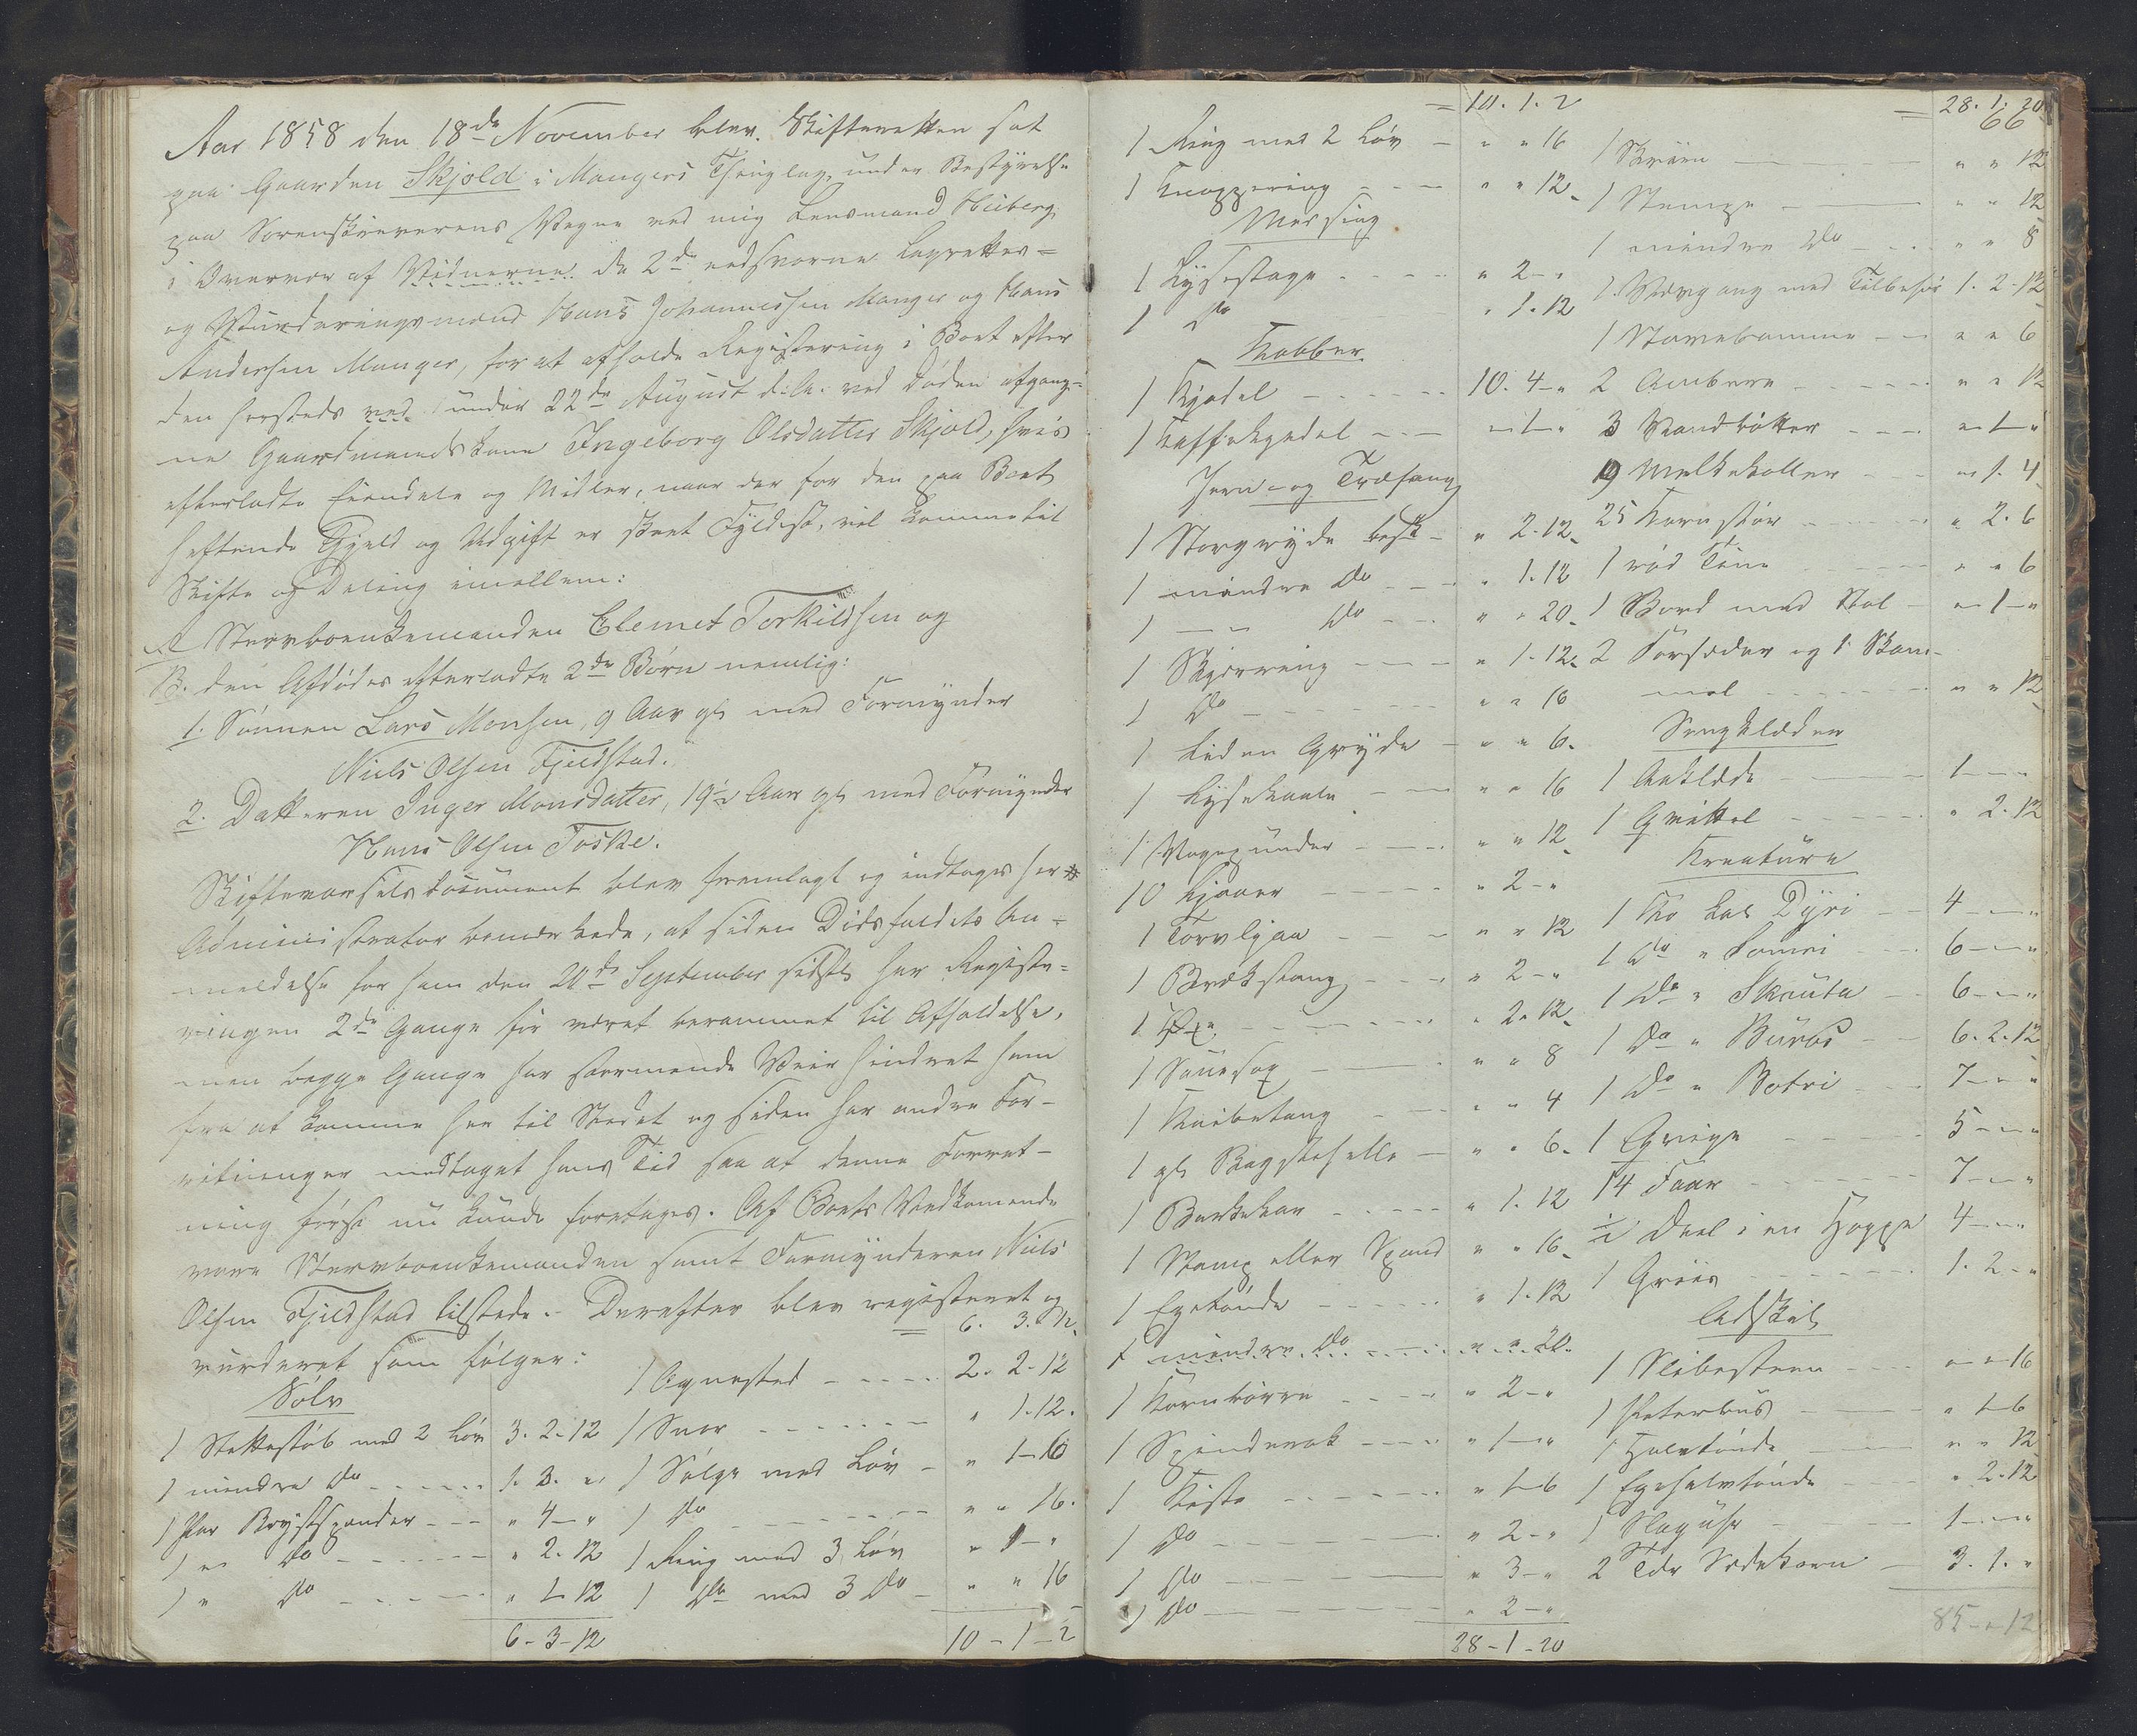 Aar 1858 den 18de November blev Skifteretten sat
paa Gaarden Skjold i Mangers Thinglag, under Bestyrelse
paa Sorenskriverens Vegne ved mig Lensmand Heiberg,
i Overvær af Vidnerne de 2de edsvorne Lagrettes=
og Vurderingsmænd Hans Johannessen Manger og Hans
Andersen Manger, for at afholde Registrering i Boet efter
den hersteds ved under 22de August d. A. ved Døden afgang=
ne Gaardmandskone Ingeborg Olsdatter Skjold, hvis
efterladte Eiendele og Midler, naar der for den paa Boet
heftende Gjæld og Udgift er skeet Fyldest, vil komme til
Skifte og Deling imellem:
A Stervboenkemanden Clemet Torkildsen og
B. den Afdødes efterladte 2de Børn nemlig:
1. Sønnen Lars Monsen, 9 Aar gl. med Formynder
Niels Olsen Fjeldstad.
2. Datteren Inger Monsdatter, 19½ Aar gl. med Formynder
Hans Olsen Toske.
Skiftevarselsdocument blev fremlagt og indtages her #
Administrator bemærkede, at siden Dødsfaldets An=
meldelse for ham den 20de September sidstl. har Registre=
ringen 2de Gange før været berammet til Afholdelse,
men begge Gange har stormende Veir hindret ham
fra at komme her til Stedet og siden har andre For=
retninger medtaget hans Tid saa at denne Forret=
ning først nu kunde foretages. Af Boets Vedkommende
vare Stervboenkemanden samt Formynderen Niels
Olsen Fjeldstad tilstede. Derefter blev registreret og
vurderet som følger:
Sølv
1 Stettestøb med 2 Løv 3. 2. 12
1 mindre do 1. 3. "
1 Par Brystspender " 4 - "
1 " do " 2. 12
1 " do " 1. 12
6 - 3 - 12
= 6. 3. 12.
1 Agnested 2. 2. 12
1 Snor " 1. 12.
1 Sølge med Løv " 1 - 16
1 do " " 16.
1 Ring med 3 Løv " 1 - "
1 do med 3 do " " 16
10 - 1 - 2
= 10. 1. 2
1 Ring med 2 Løv " " 16
1 Knappering " " 12
Messing
1 Lysestage " 2 - "
1 do " 1. 12
Kobber
1 Kjedel 10. 4 - "
1 Kaffekjedel " 1 - "
Jern= og Træfang
1 Storgryde besk. " 2. 12
1 mindre do " 1. 12
1 — do " " 20
1 Skjerring " 1. 12
1 do " " 16
1 liden Gryde " " 6.
1 Lysekaale " " 16
1 Vægepunder " " 12
10 Ljaaer " 2 - "
1 Torvljaa " " 12
1 Brækstang " 2 - "
1 Øxe " 2. 12
1 Sauesax " " 8
1 Knibetang " " 4
1 gl. Bagstehelle " " 6
1 Barkekar " 1. 12
1 Stamp eller Spand " " 16
1 Egetønde " 1. 12
1 mindre do " " 20.
1 Kornkørre " 2 - "
1 Spinderok " 1 - "
1 Kiste " 1 - 6
1 do " 2 - "
1 do " 3 - "
1 do " 2 - "
28 - 1 - 20
66
= 28. 1. 20
1 Skriin " " 12
1 Stampe " " 12
1 mindre do " " 8
1 Vævgang med Tilbehør 1. 2. 12
1 Stovebomme " " 6
2 Ambere " " 12
3 Vandbøtter " 1 - "
19 Melkekoller " 1. 4
25 Kornstør " 2. 6
1 rød Tine " " 6
1 Bord med Stol " 1 - "
2 Forsæder og 1 Skam=
mel " " 12
Sengklæder
1 Aaklæde 1 - - "
1 Qvittel " 2. 12
Kreature
1 Ko kal. Dyri 4 - - "
1 do " Lomri 6 - - "
1 do " Skauta 6 - - "
1 do " Buros 6. 2. 12
1 do " Botri 7 - - "
1 Qvige 5 - - "
14 Faar 7 - - "
½ Deel i en Hoppe 4 - - "
1 Griis 1. 2 - "
Adskil.
1 Slibesteen " " 16
1 Halvtønde " " 12
1 Egehalvtønde " 2. 12
1 Slaguhr 1 - - "
2 Tdr Sædekorn 3. 1. "
85 - " 12